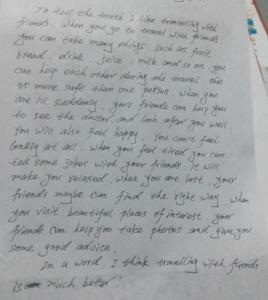 To tell the truth I like travelling with
friends. When you go to travel with friends
you can take many things, such as fruit
bread, drink, juice, milk and so on. you
can help each other during the travel and
is more safe than one person. when you
are ill suddenly, your friends can help you
to see the doctor and look after you well.
You will also feel happy. You can't feel
lonely at all. when you feel tired you can
tell some jokes with your friends. it will
make you relaxed. when you are lost. your
friends maybe can find the right way. when
you visit beautiful places of interest. your
friends can help you take photos and give you
some good advice.
In a word, I think travelling with friends
is much better!